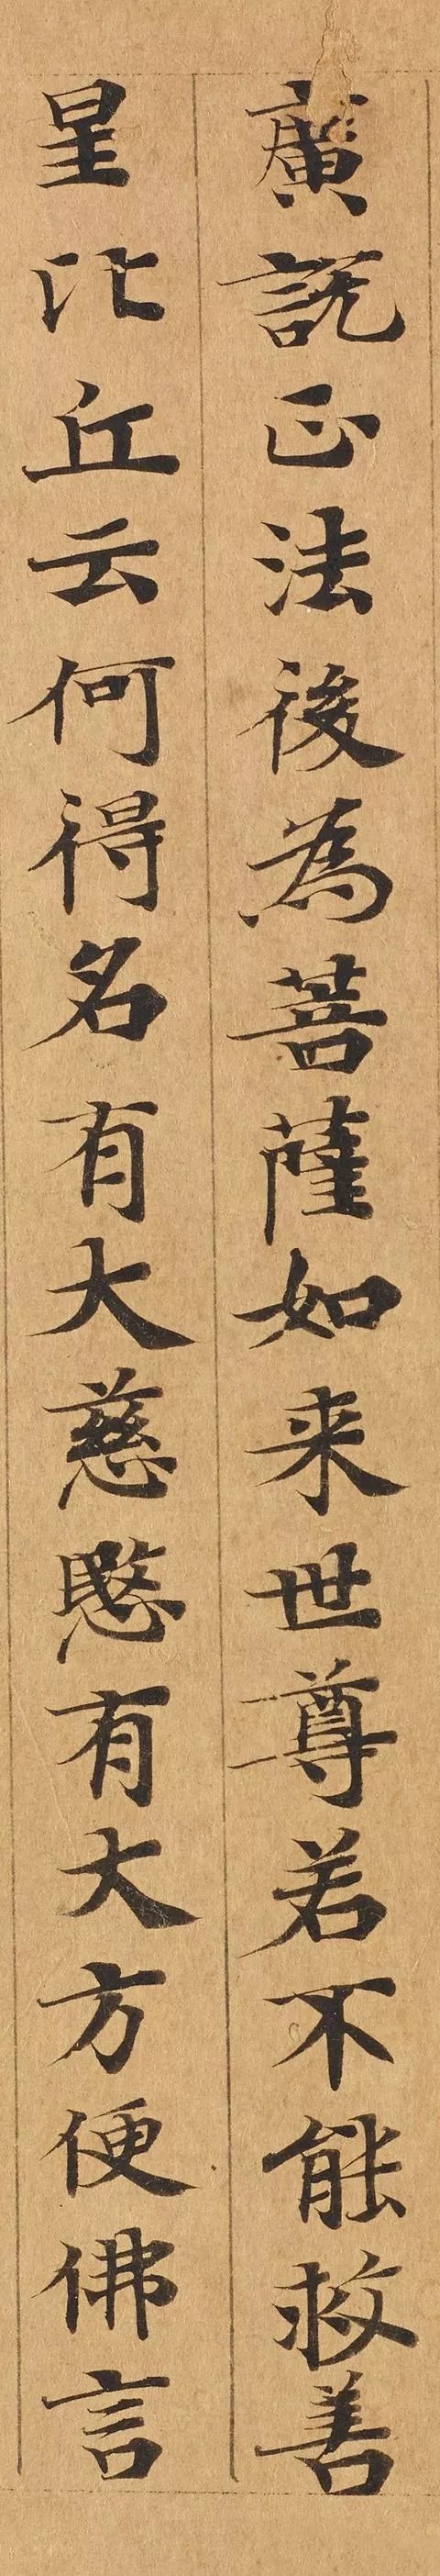 廣說正法後為菩薩如来世尊若不能救善
星比丘云何得名有大慈愍有大方便佛言